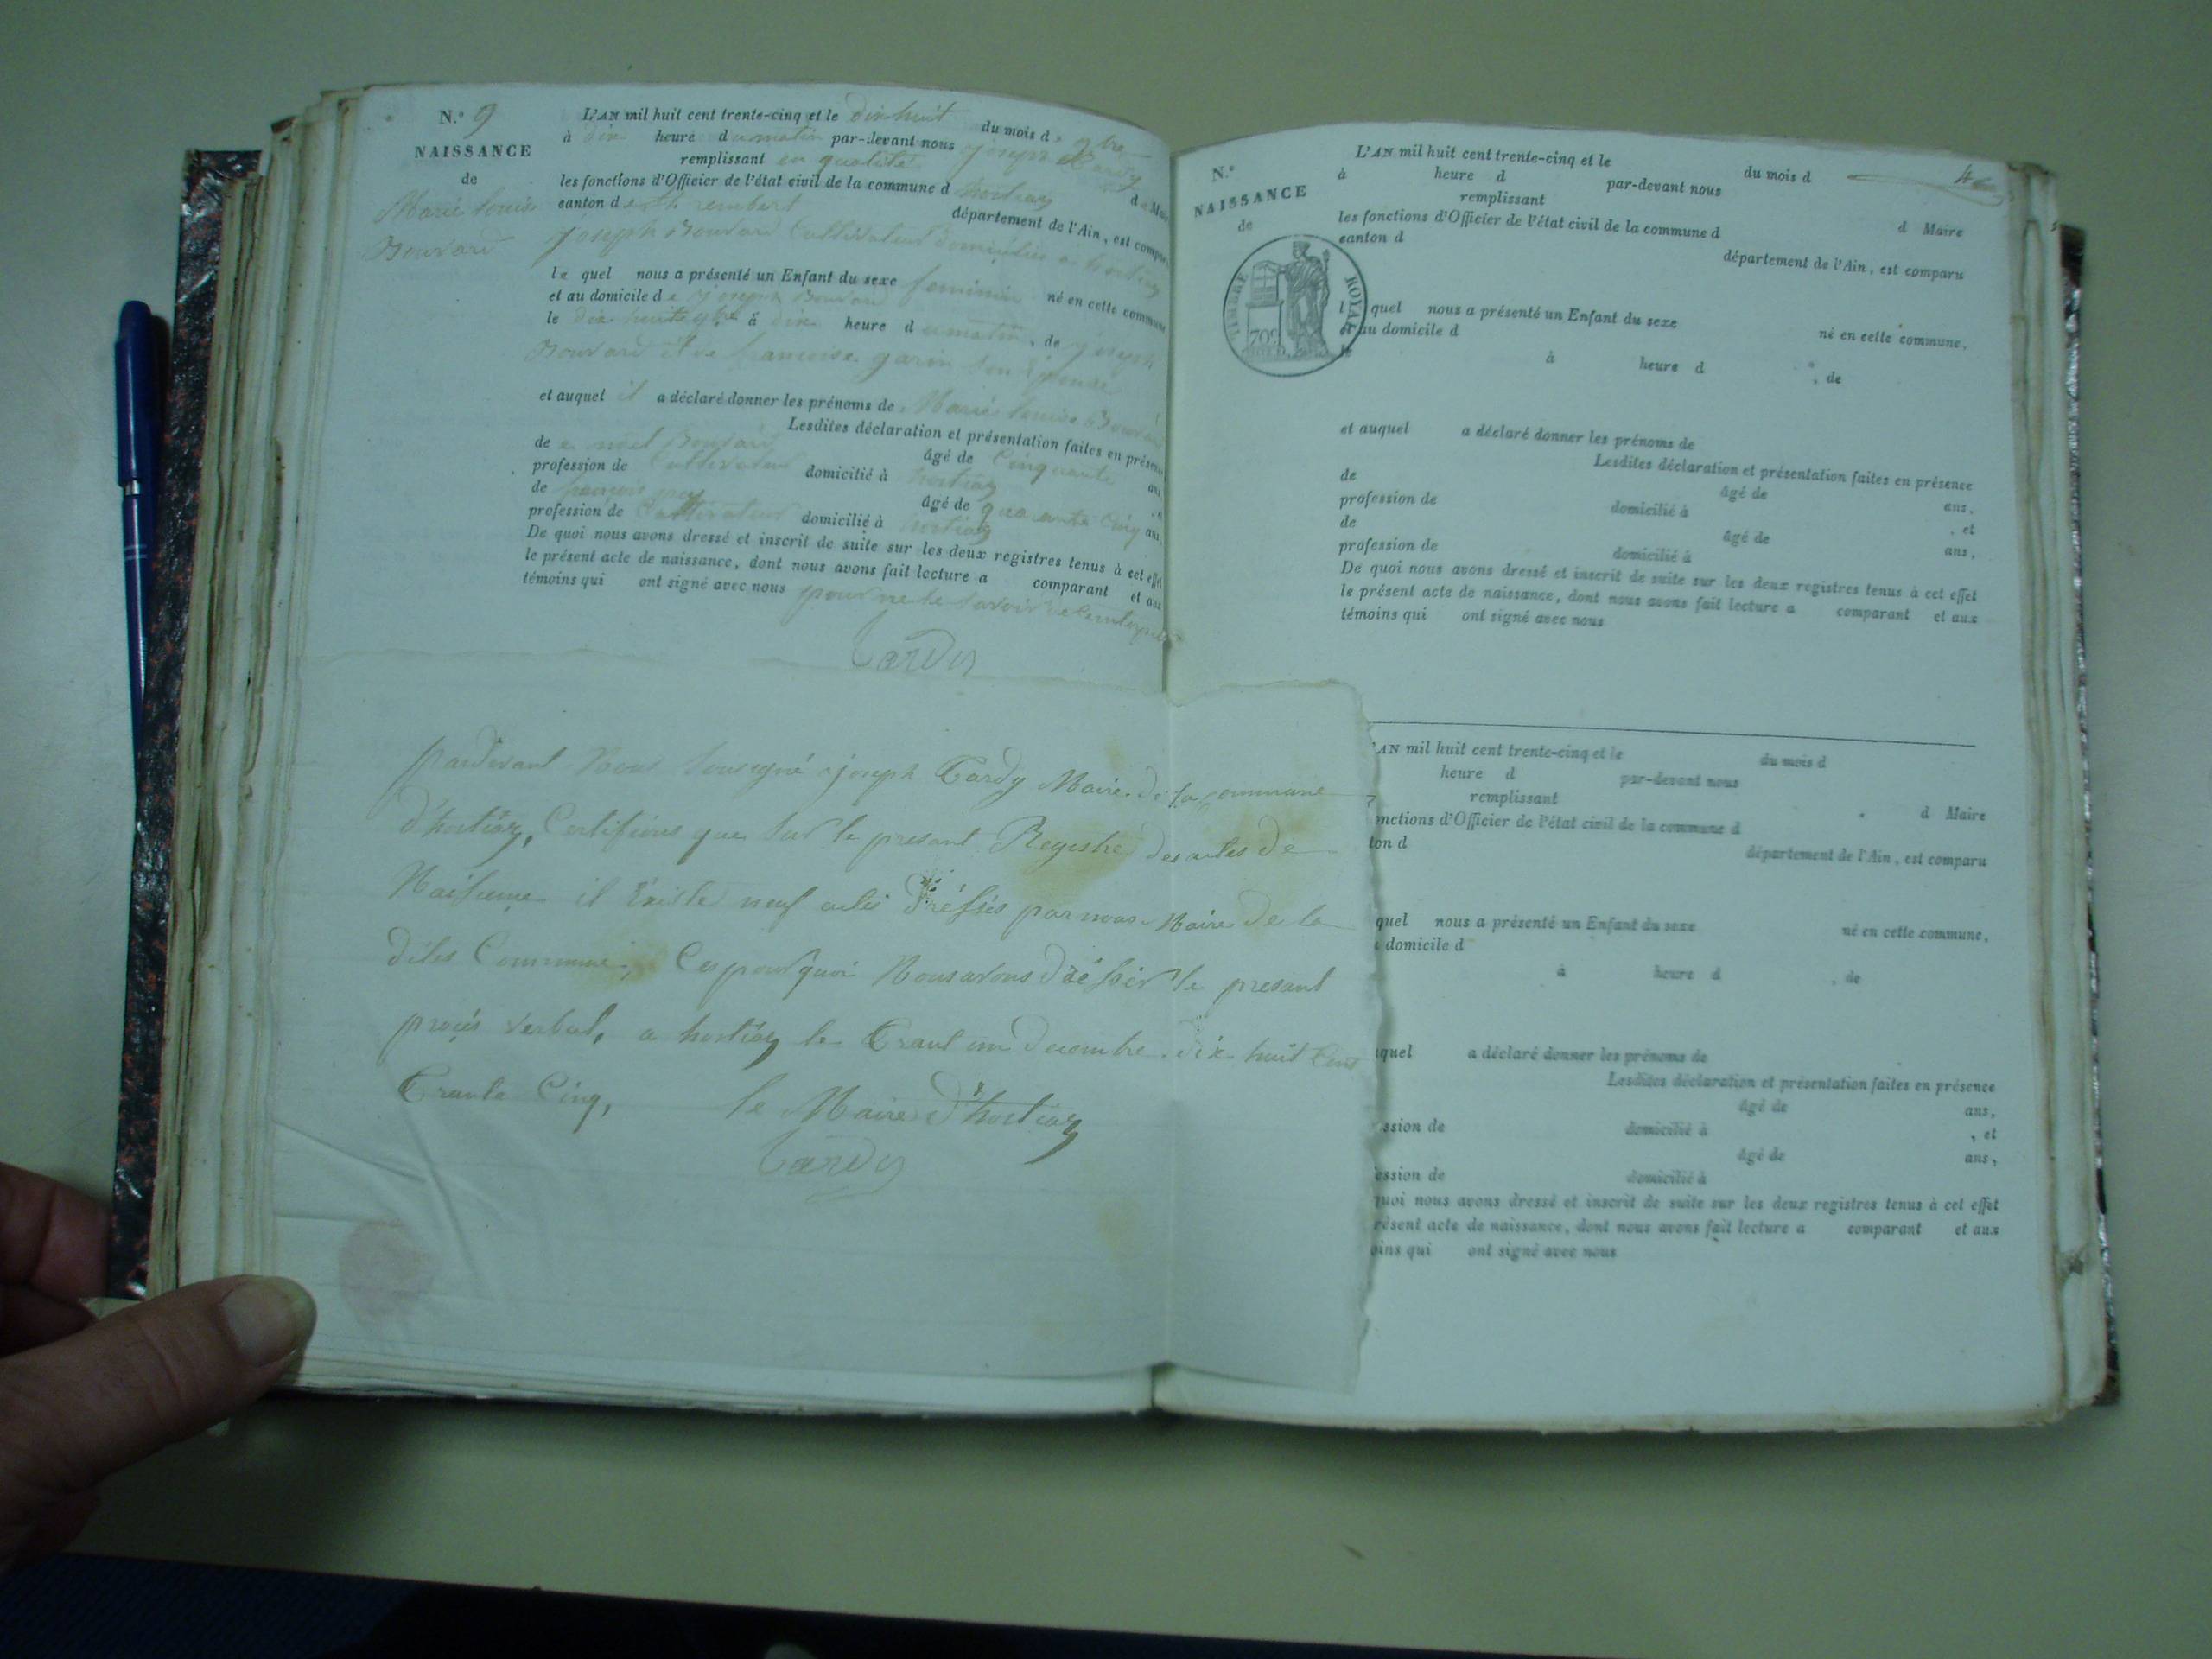 N.º 9
NAISSANCE
de
Marie Louise
Bouvard
L'AN mil huit cent trente-cinq et le dix huit du mois d 9bre
à dix heure du matin par-devant nous joseph Tardy
remplissant en qualité de Maire
les fonctions d'Officier de l'état civil de la commune d hostiaz
canton de st rembert département de l'Ain, est comparu
joseph Bouvard Cultivateur domicilié a hostiaz
le quel nous a présenté un Enfant du sexe feminin né en cette commune
et au domicile de joseph Bouvard
le dix huit 9bre à dix heure du matin, de joseph
Bouvard et de francoise garin son épouse
et auquel il a déclaré donner les prénoms de Marie Louise Bouvard
Lesdites déclaration et présentation faites en présence
de Bouvard âgé de Cinquante ans
profession de Cultivateur domicilié à hostiaz
de françois âgé de quarante Cinq ans
profession de Cultivateur domicilié à hostiaz
De quoi nous avons dressé et inscrit de suite sur les deux registres tenus à cet effet
le présent acte de naissance, dont nous avons fait lecture a comparant et aux
témoins qui ont signé avec nous pour ne le savoir
Tardy
pardevant Nous Sousigné joseph Tardy Maire de la Commune
d'hostiaz, Certifions que sur le presant Registre des actes de
Naissance il Existe neuf actes Dréssés par nous Maire de la
dites Commune. Cespourquoi Nous avons dréssér le presant
procés verbal, a hostiaz le Trant un decembre dix huit Cent
Trante Cinq,
le Maire d'hostiaz
Tardy
4
N.º
NAISSANCE
de
TIMBRE ROYAL
70c
L'AN mil huit cent trente-cinq et le du mois d
à heure d par-devant nous
remplissant d Maire
les fonctions d'Officier de l'état civil de la commune d
canton d département de l'Ain, est comparu
l quel nous a présenté un Enfant du sexe né en cette commune,
et au domicile d
le à heure d , de
et auquel a déclaré donner les prénoms de
Lesdites déclaration et présentation faites en présence
de âgé de ans,
profession de domicilié à , et
de âgé de ans,
profession de domicilié à
De quoi nous avons dressé et inscrit de suite sur les deux registres tenus à cet effet
le présent acte de naissance, dont nous avons fait lecture a comparant et aux
témoins qui ont signé avec nous
'AN mil huit cent trente-cinq et le du mois d
heure d par-devant nous
remplissant d Maire
onctions d'Officier de l'état civil de la commune d
ton d département de l'Ain, est comparu
quel nous a présenté un Enfant du sexe né en cette commune,
domicile d
à heure d , de
uquel a déclaré donner les prénoms de
Lesdites déclaration et présentation faites en présence
âgé de ans,
ssion de domicilié à , et
âgé de ans,
ession de domicilié à
quoi nous avons dressé et inscrit de suite sur les deux registres tenus à cet effet
résent acte de naissance, dont nous avons fait lecture a comparant et aux
oins qui ont signé avec nous